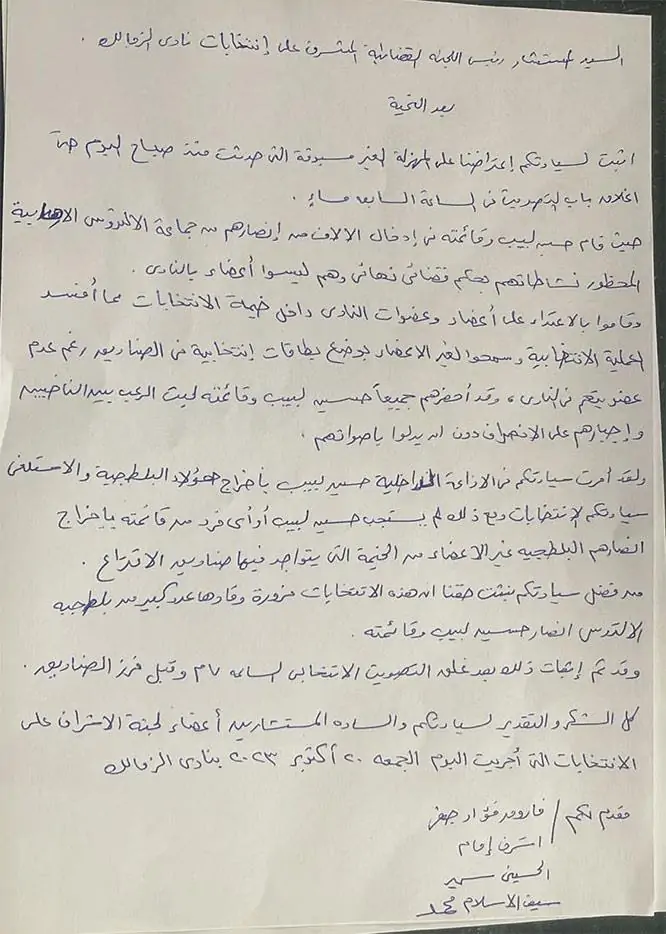 السيد المستشار رئيس اللجنة القضائية المشرف على إنتخابات نادى الزمالك .
بعد التحية
اثبت لسيادتكم إعتراضنا على المهزلة الغير مسبوقة التى حدثت منذ صباح اليوم حتى
اغلاق باب التصويت فى الساعة السابعه مساءً .
حيث قام حسين لبيب وقائمته فى إدخال الالاف من إنصارهم من جماعة الالتروس الارهابية
المحظور نشاطاتهم بحكم قضائى نهائى وهم ليسوا أعضاء بالنادى .
وقاموا بالاعتداء على أعضاء وعضوات النادى داخل خيمة الانتخابات مما أفسد
العملية الانتخابية وسمحوا لغير الاعضاء بوضع بطاقات إنتخابية فى الصناديق رغم عدم
عضويتهم فى النادى ، وقد أحضرهم جميعاً حسين لبيب وقائمته لبث الرعب بين الناخبين
و إجبارهم على الانصراف دون ان يدلوا باصواتهم .
ولقد أمرت سيادتكم فى الاذاعة الداخلية حسين لبيب بأخراج هؤلاء البلطجية والا ستلغى
سيادتكم الإنتخابات ومع ذلك لم يستجب حسين لبيب أو أى فرد من قائمته بإخراج
انصارهم البلطجيه غير الاعضاء من الخيمة التى يتواجد فيها صناديق الاقتراع .
من فضل سيادتكم نثبت حقنا ان هذه الانتخابات مزورة وقادها عدد كبير من بلطجيه
الالتدس انصار حسين لبيب وقائمته .
وقد تم إثبات ذلك بعد غلق التصويت الانتخابى الساعه ٧ م وقبل فرز الصناديق .
كل الشكر و التقدير لسيادتكم والساده المستشارين أعضاء لجنة الاشراف على
الانتخابات التى أجريت اليوم الجمعه ٢٠ أكتوبر ٢٠٢٣ بنادى الزمالك
مقدم لكم / فاروق فؤاد جعفر
اشرف إمام
الحسينى سمير
سيف الاسلام محمد